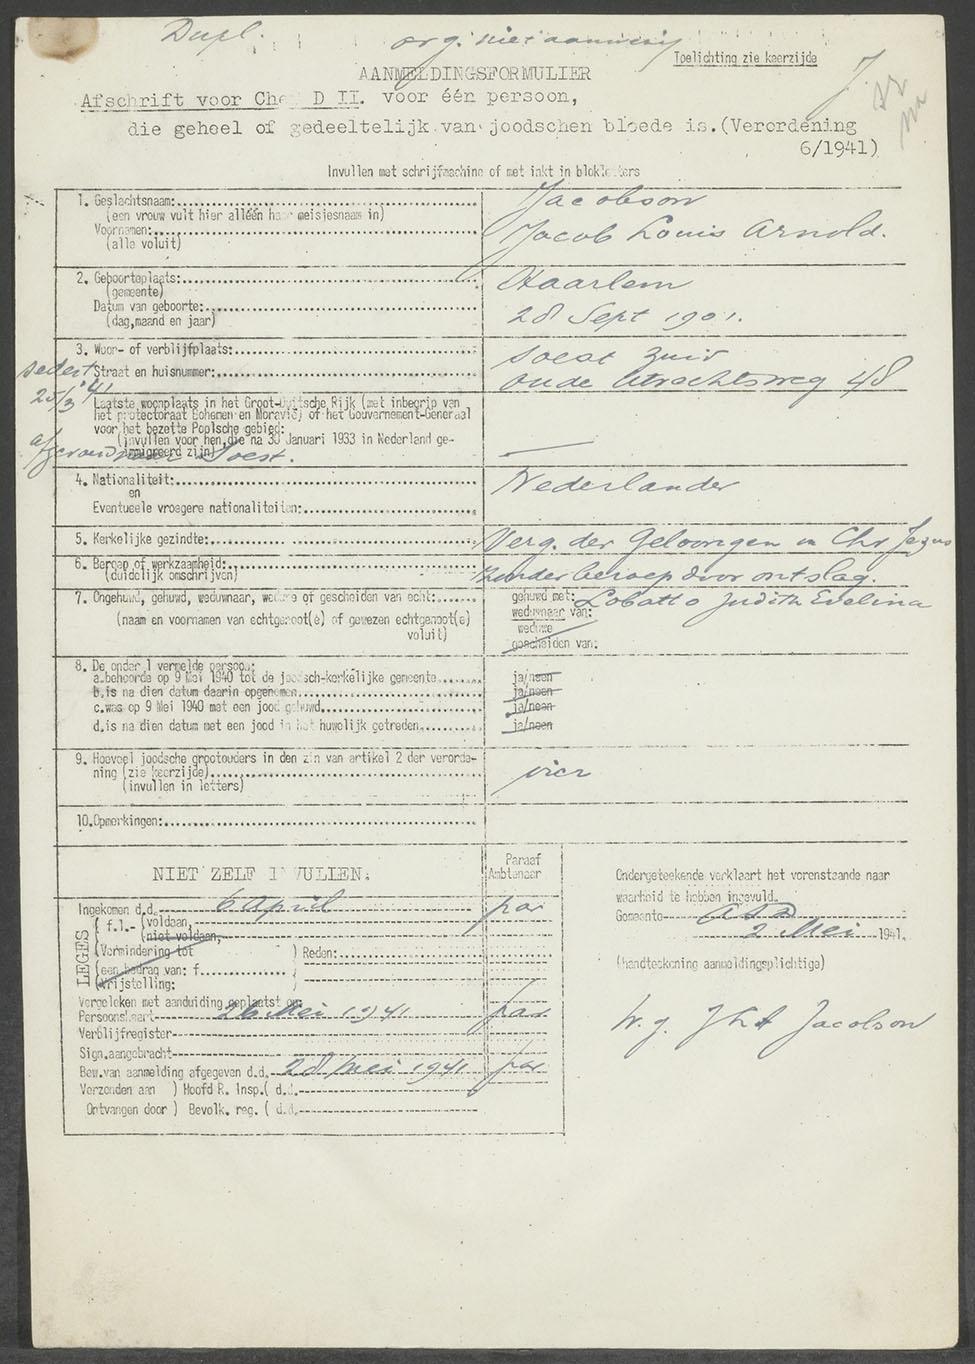 Dupl.
org. niet aanwezig
Toelichting zie keerzijde
J
AANMELDINGSFORMULIER
Afschrift voor Chef D II. voor één persoon,
die geheel of gedeeltelijk van joodschen bloede is.(Verordening
6/1941)
Invullen met schrijfmachine of met inkt in blokletters
1. Geslachtsnaam: Jacobson
(een vrouw vult hier alléén haar meisjesnaam in)
Voornamen: Jacob Louis Arnold.
(alle voluit)
2. Geboorteplaats: Haarlem
(gemeente)
Datum van geboorte: 28 Sept 1901.
(dag,maand en jaar)
3. Woon- of verblijfplaats: Soest Zuid
Straat en huisnummer: Oude Utrechtsweg 48
sedert
25/3 '41
Laatste woonplaats in het Groot-Duitsche Rijk (met inbegrip van
het protectoraat Bohemen en Moravië) of het Gouvernement-Generaal
voor het bezette Poolsche gebied:
(invullen voor hen,die na 30 Januari 1933 in Nederland ge-
immigreerd zijn) —
afgevoerd naar Soest.
4. Nationaliteit: Nederlander
en
Eventueele vroegere nationaliteiten:
5. Kerkelijke gezindte: Verg. der Geloovigen in Chr Jezus
6. Beroep of werkzaamheid: zonder beroep door ontslag.
(duidelijk omschrijven)
7. Ongehuwd, gehuwd, weduwnaar, weduwe of gescheiden van echt: gehuwd met: Lobatto Judith Evelina
weduwnaar van:
(naam en voornamen van echtgenoot(e) of gewezen echtgenoot(e)
voluit)
weduwe
gescheiden van:
8. De onder 1 vermelde persoon:
a.behoorde op 9 Mei 1940 tot de joodsch-kerkelijke gemeente ja/neen
b.is na dien datum daarin opgenomen ja/neen
c.was op 9 Mei 1940 met een jood gehuwd ja/neen
d.is na dien datum met een jood in het huwelijk getreden ja/neen
9. Hoeveel joodsche grootouders in den zin van artikel 2 der verorde-
ning (zie keerzijde) vier
(invullen in letters)
10.Opmerkingen:
NIET ZELF INVULLEN.
Paraaf
Ambtenaar
Ingekomen d.d. 6 April par
LEGES
f.1.- (voldaan,
(niet voldaan,
(Vermindering tot ) Reden:
(een bedrag van: f.
(Vrijstelling:
Vergeleken met aanduiding geplaatst op:
Persoonskaart 26 Mei 1941 par
Verblijfregister
Sign.aangebracht
Bew.van aanmelding afgegeven d.d. 28 Mei 1941 par
Verzonden aan ) Hoofd R. Insp.( d.d.
Ontvangen door ) Bevolk. reg. ( d.d.
Ondergeteekende verklaart het vorenstaande naar
waarheid te hebben ingevuld.
Gemeente Asd
2 Mei 1941.
(handteekening aanmeldingsplichtige)
w.g. JLA Jacobson